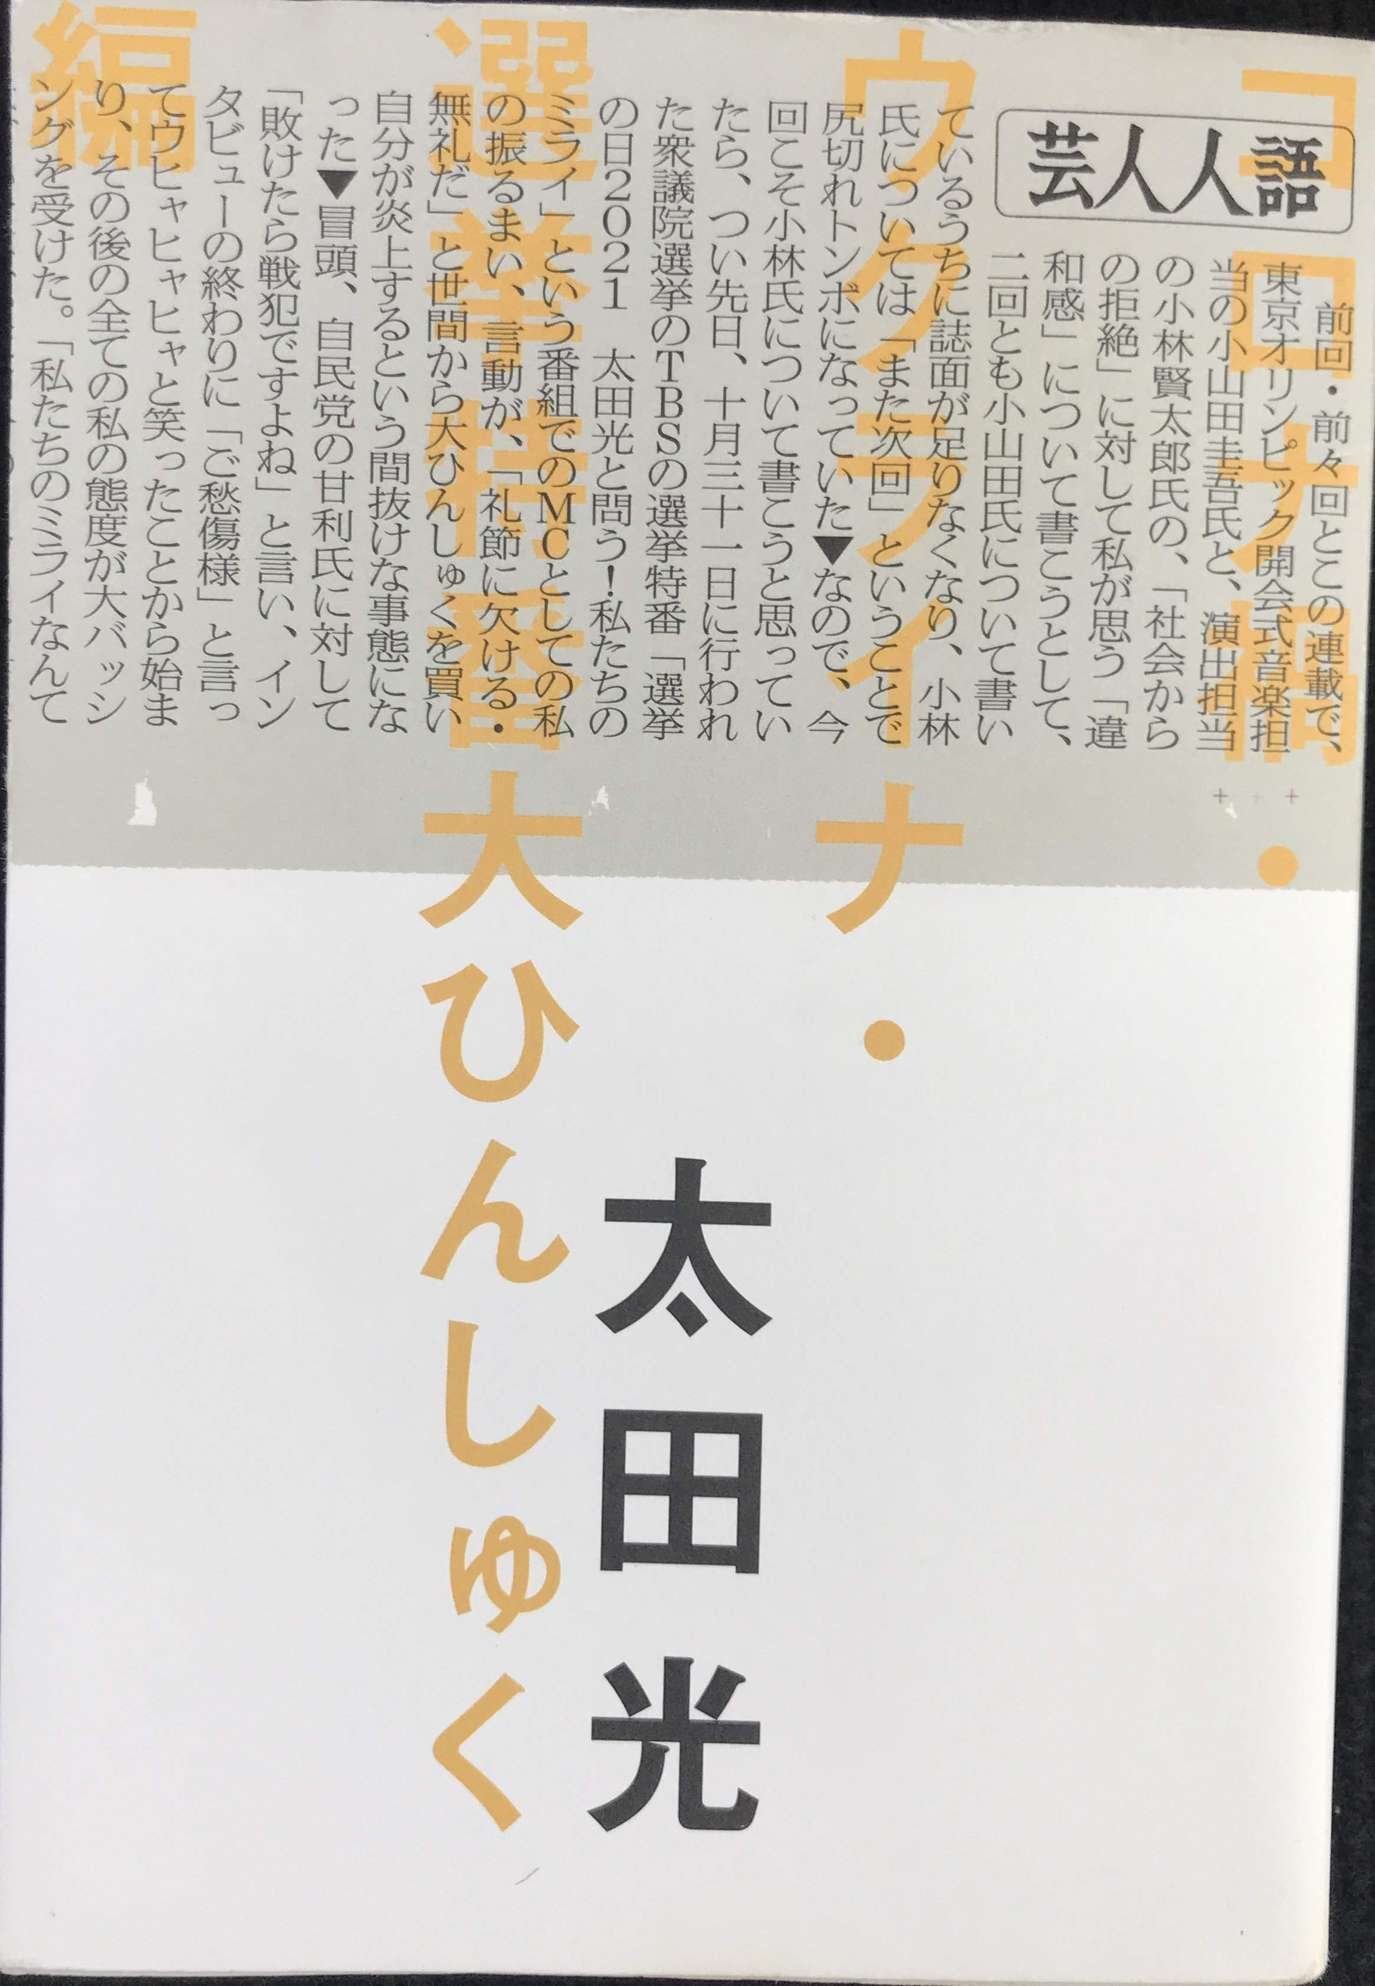 芸人人語
前回・前々回とこの連載で、
東京オリンピック開会式音楽担
当の小山田圭吾氏と、演出担当
の小林賢太郎氏の、「社会から
の拒絶」に対して私が思う「違
和感」について書こうとして、
二回とも小山田氏について書い
ているうちに誌面が足りなくなり、小林
氏については「また次回」ということで
尻切れトンボになっていた▼なので、今
回こそ小林氏について書こうと思ってい
たら、つい先日、十月三十一日に行われ
た衆議院選挙のTBSの選挙特番「選挙
の日2021　太田光と問う！私たちの
ミライ」という番組でのMCとしての私
の振るまい、言動が、「礼節に欠ける・
無礼だ」と世間から大ひんしゅくを買い
自分が炎上するという間抜けな事態にな
った▼冒頭、自民党の甘利氏に対して
「敗けたら戦犯ですよね」と言い、イン
タビューの終わりに「ご愁傷様」と言っ
てウヒャヒャヒャと笑ったことから始ま
り、その後の全ての私の態度が大バッシ
ングを受けた。「私たちのミライなんて
コロナ禍・
ウクライナ・
選挙特番大ひんしゅく
編
太田光